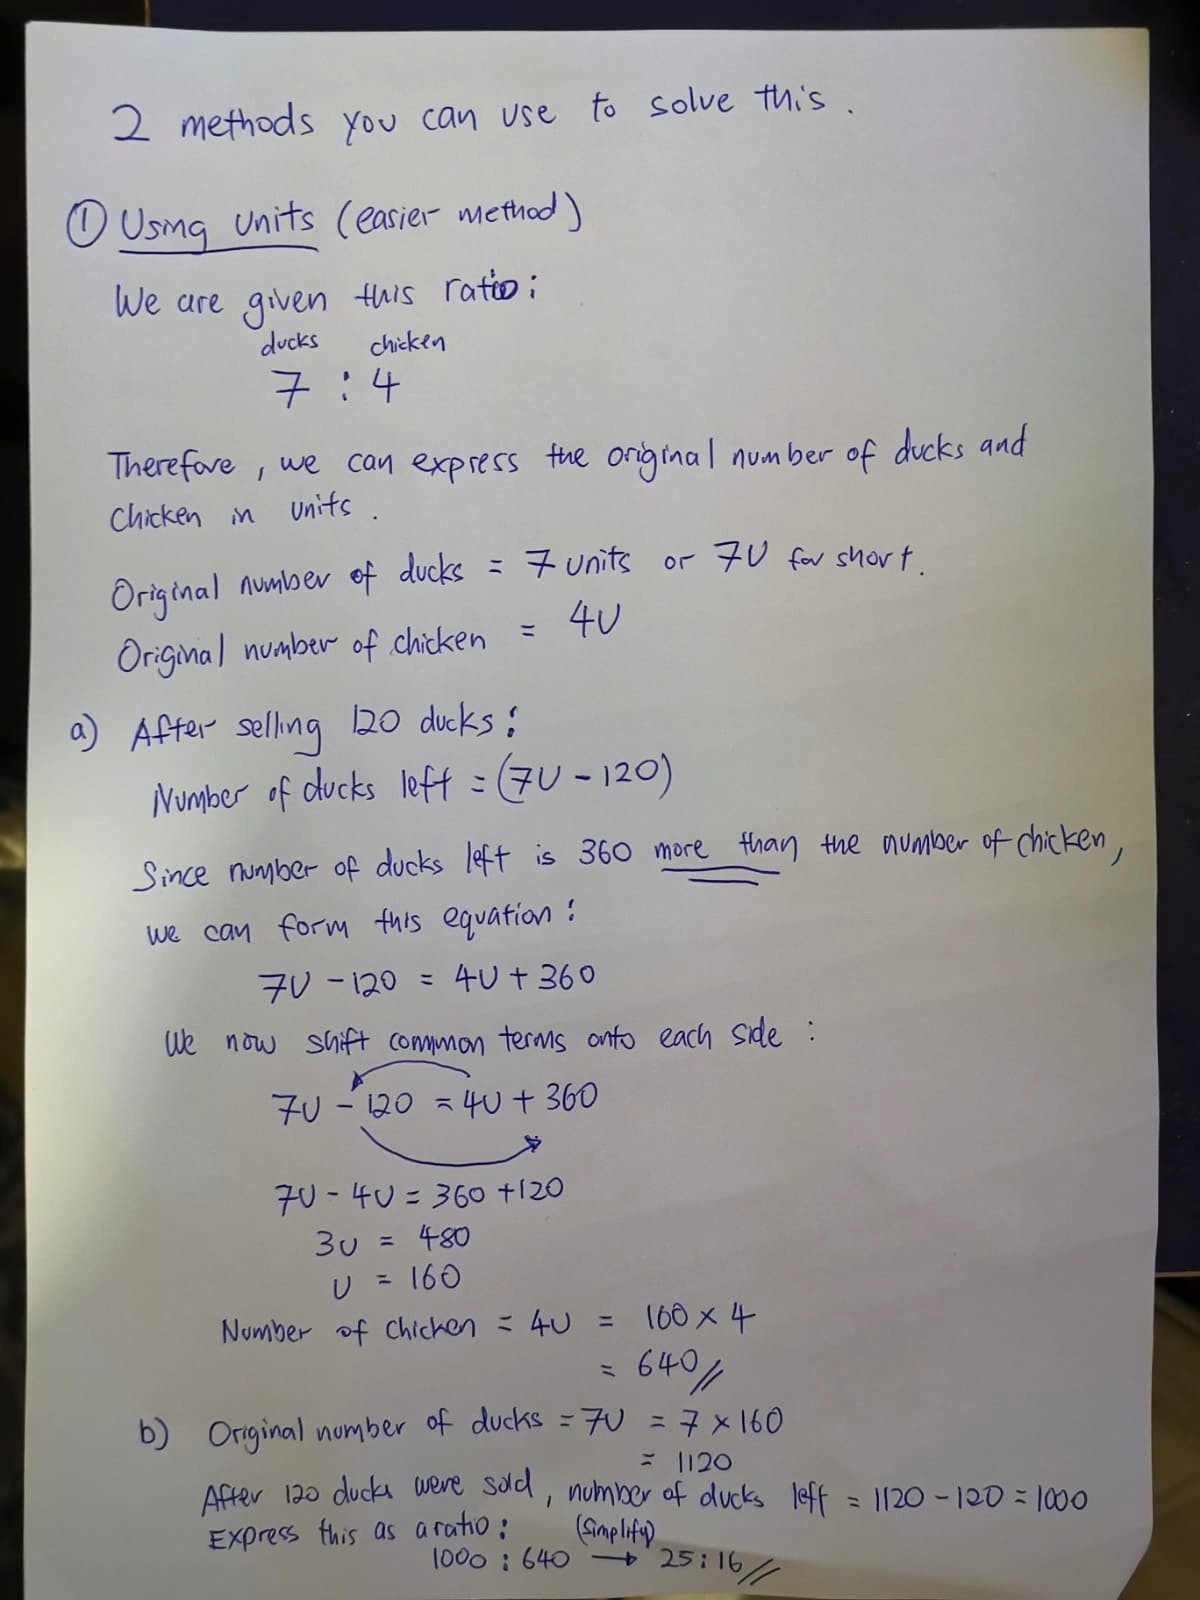 2 methods you can use to solve this.
① Using units (easier method)
We are given this ratio:
ducks chicken
7 : 4
Therefore, we can express the original number of ducks and
chicken in units.
Original number of ducks = 7 units or 7U for short.
Original number of chicken = 4U
a) After selling 120 ducks:
Number of ducks left = (7U - 120)
Since number of ducks left is 360 more than the number of chicken,
we can form this equation:
7U - 120 = 4U + 360
We now shift common terms onto each side :
7U - 120 = 4U + 360
7U - 4U = 360 + 120
3U = 480
U = 160
Number of chicken = 4U = 160 × 4
= 640//
b) Original number of ducks = 7U = 7 × 160
= 1120
After 120 ducks were sold, number of ducks left = 1120 - 120 = 1000
Express this as a ratio: (Simplify)
1000 : 640 → 25 : 16//